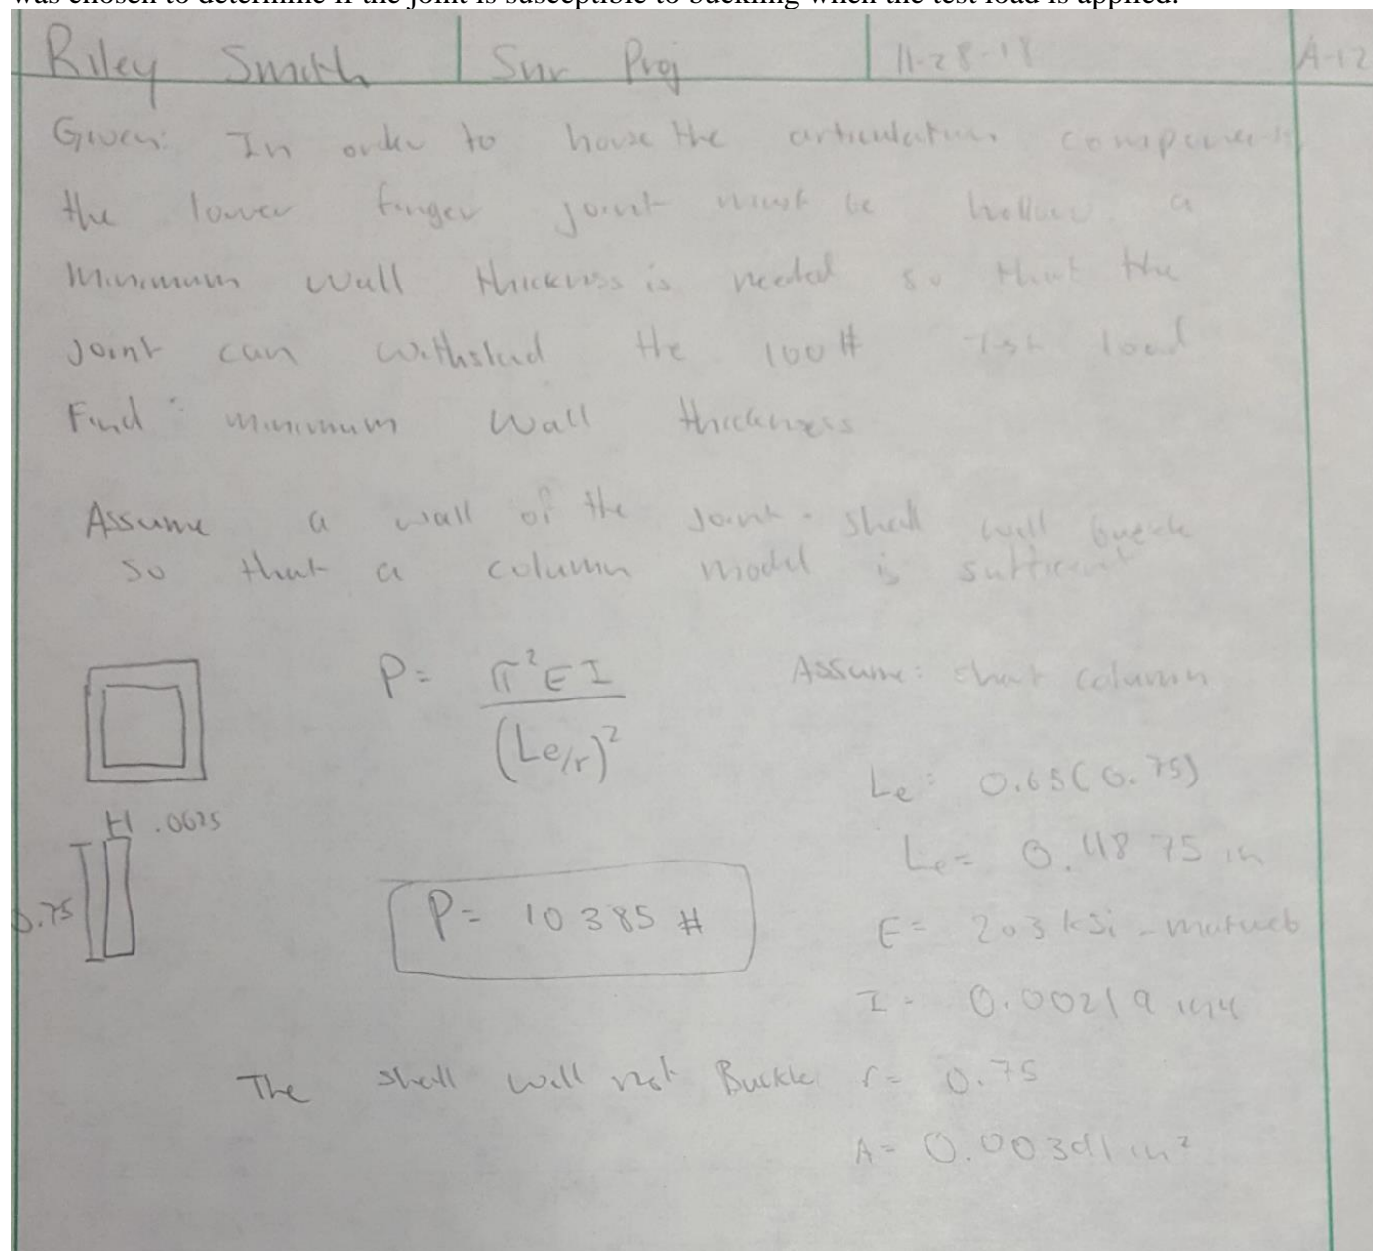 was chosen to determine if the joint is susceptible to buckling when the test load is applied.
Riley Smith Snr Proj 11-28-18 A-12
Given: In order to house the articulation components
the lower finger joint must be hollow. a
Minimum wall thickness is needed so that the
Joint can withstad the 100# load
Find: minimum wall thickness
Assume a wall of the Joint shell will
so that a column model is sufficient
P= π²EI/(Le/r)² Assume: short column
Le= 0.65(0.75)
H .0625
Le= 0.4875 in
0.75
P= 10385 #
E= 203 ksi -
I= 0.00219 in4
The shell will not Buckle r= 0.75
A= 0.00391 in²